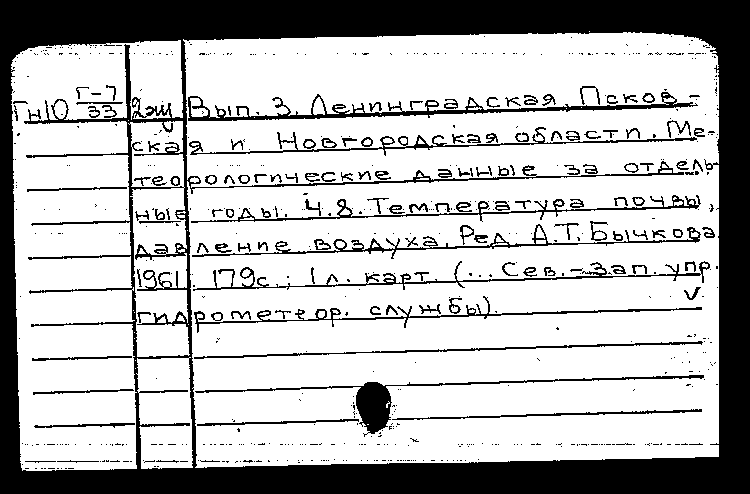 Гн10 Г-7/33 2эц Вып. 3. Ленинградская, Псков-
ская и Новгородская области. Ме-
теорологические данные за отдель-
ные годы. Ч.8. Температура почвы,
давление воздуха. Ред. А.Т. Бычкова
1961. 179с.; 1 л. карт. (... Сев.-Зап. упр.
гидрометеор. службы).